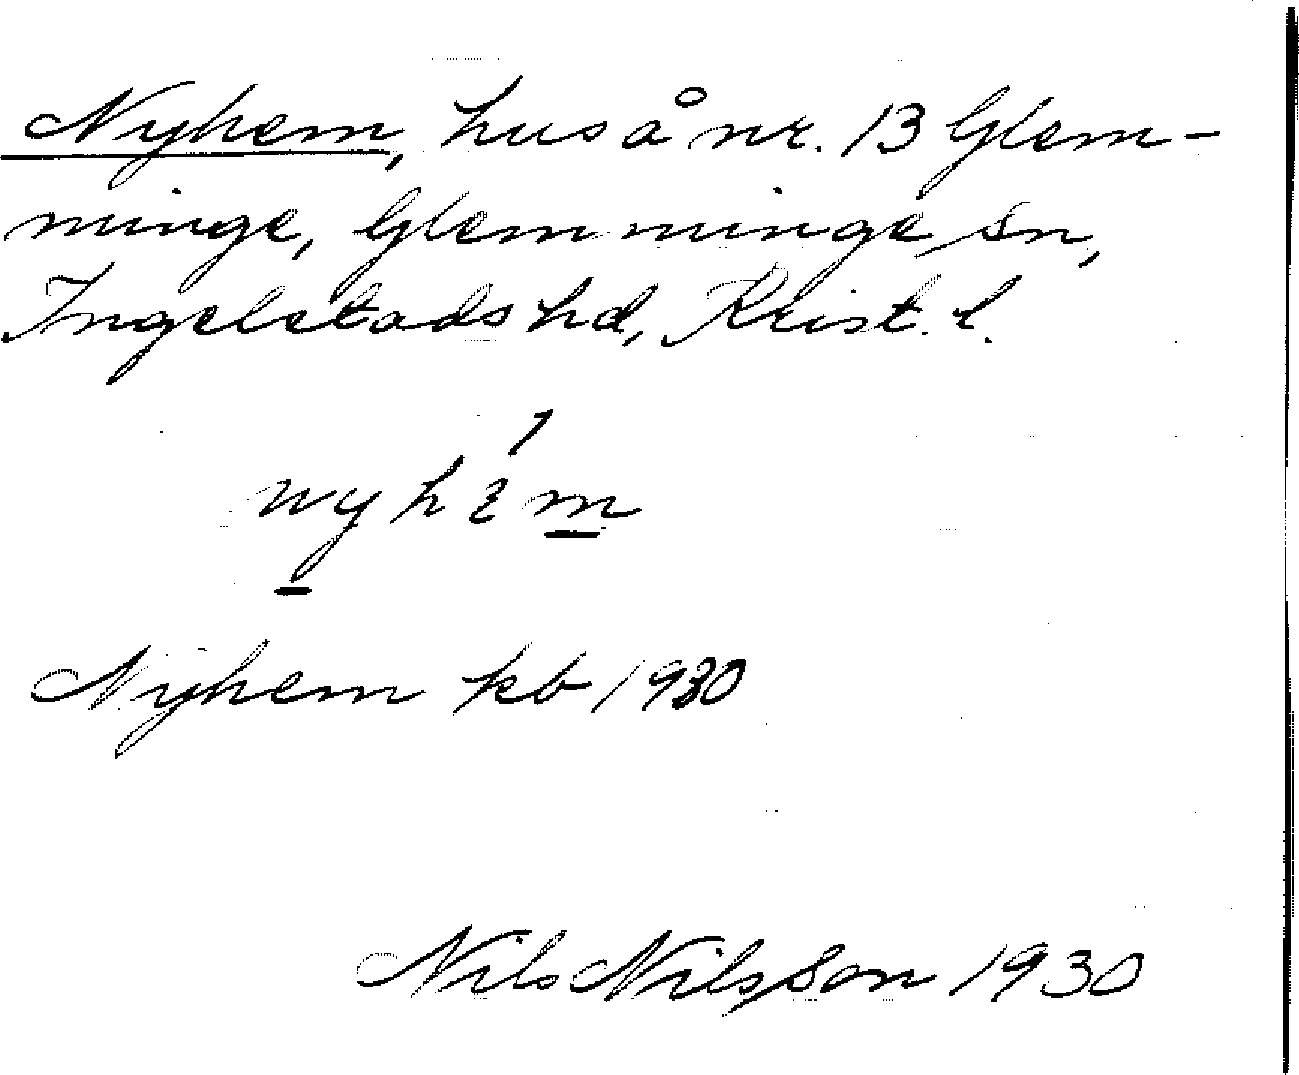 Nyhem, hus å nr. 13 Glem-
minge, Glemminge sn,
Ingelstads hd, Krist. l.
nyhém
Nyhem kb 1930
Nils Nilsson 1930